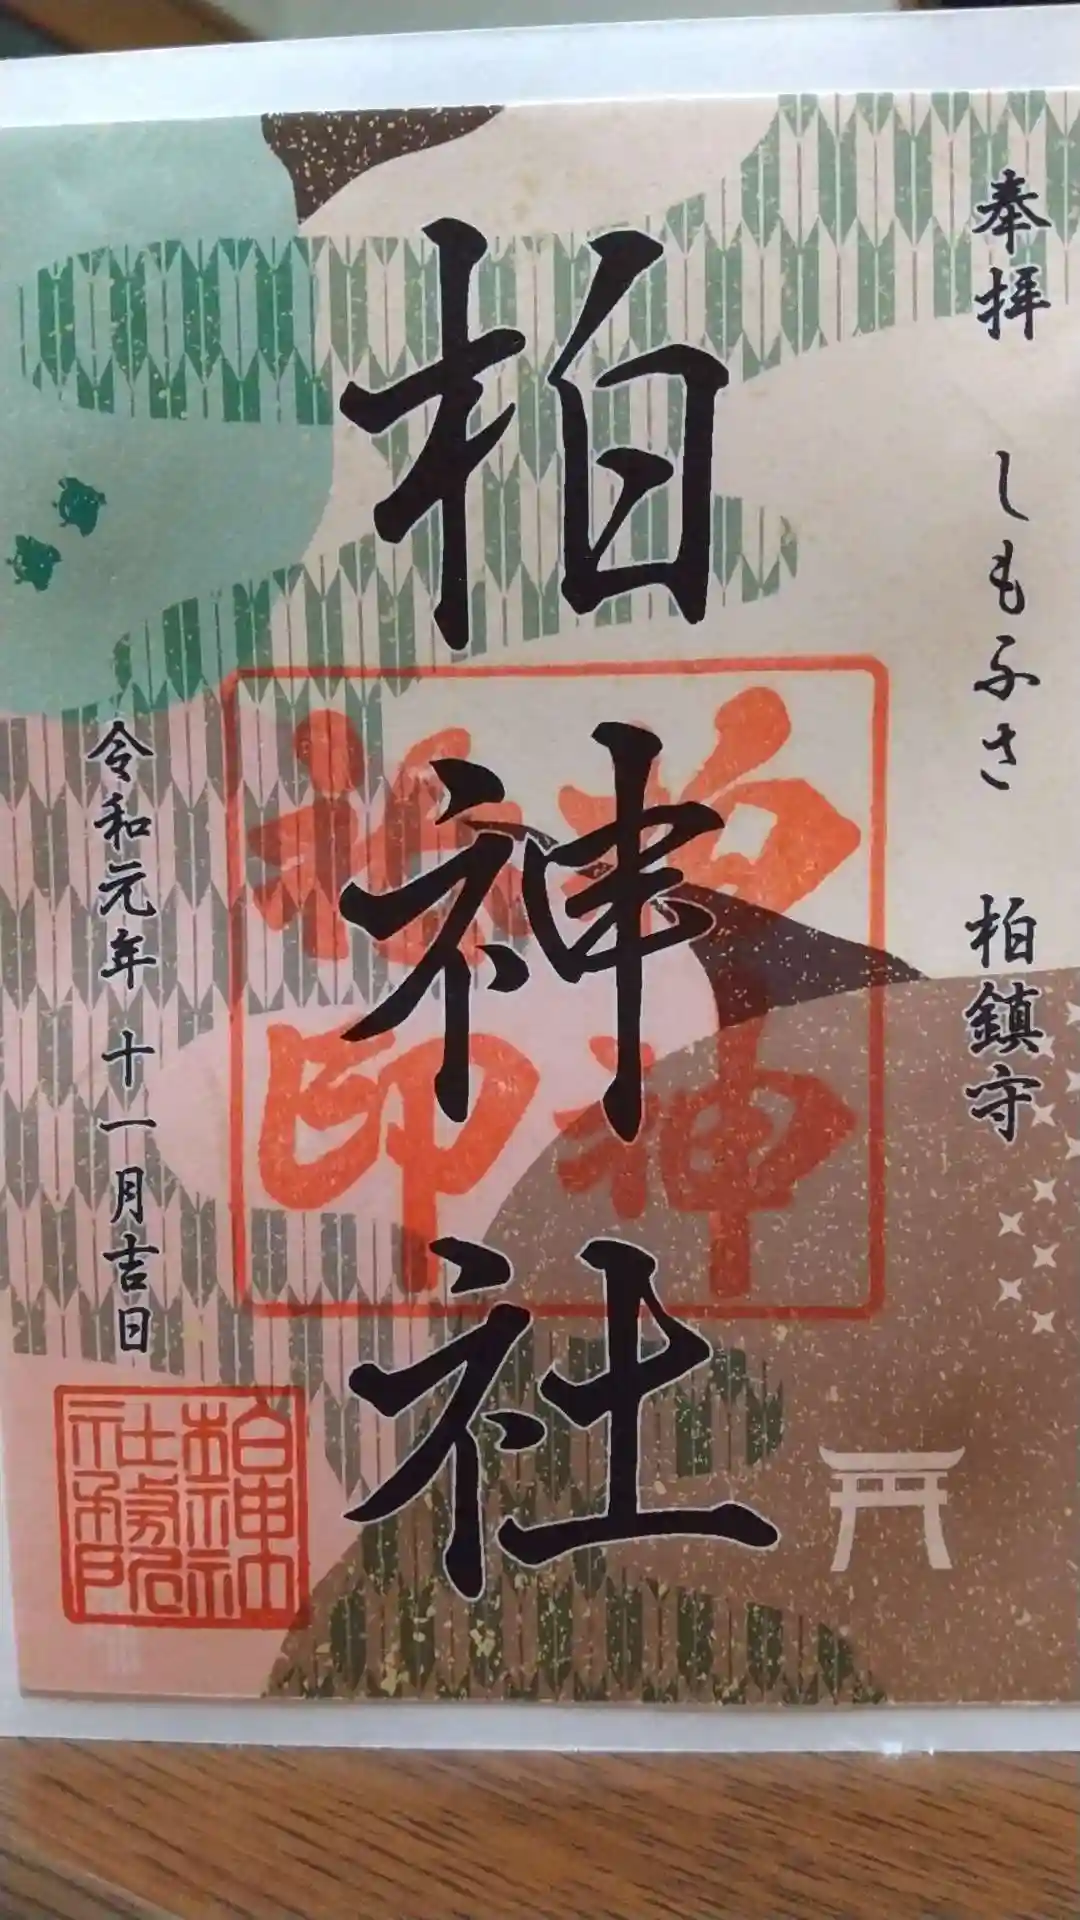 奉拝 しもふさ 柏鎮守
柏神社
柏神
社印
令和元年 十一月吉日
柏神社
社務所印